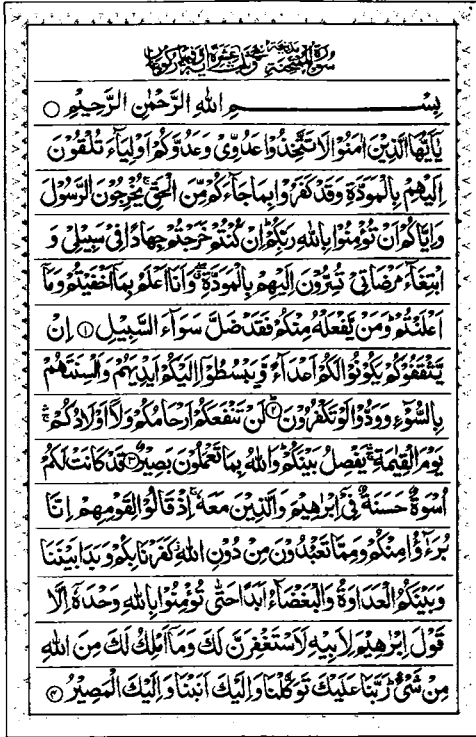 سُوْرَةُ الْمُمْتَحِنَةِ مَدَنِيَّةٌ وَّهِيَ ثَلٰثَ عَشْرَةَ اٰيَةً
بِسْمِ اللهِ الرَّحْمٰنِ الرَّحِيْمِ ○
يٰۤاَيُّهَا الَّذِيْنَ اٰمَنُوْا لَا تَتَّخِذُوْا عَدُوِّىْ وَعَدُوَّكُمْ اَوْلِيَآءَ تُلْقُوْنَ
اِلَيْهِمْ بِالْمَوَدَّةِ وَقَدْ كَفَرُوْا بِمَا جَآءَكُمْ مِّنَ الْحَقِّ ۚ يُخْرِجُوْنَ الرَّسُوْلَ
وَاِيَّاكُمْ اَنْ تُؤْمِنُوْا بِاللهِ رَبِّكُمْ ؕ اِنْ كُنْتُمْ خَرَجْتُمْ جِهَادًا فِىْ سَبِيْلِىْ وَ
ابْتِغَآءَ مَرْضَاتِىْ تُسِرُّوْنَ اِلَيْهِمْ بِالْمَوَدَّةِ ۖ وَاَنَا اَعْلَمُ بِمَاۤ اَخْفَيْتُمْ وَمَاۤ
اَعْلَنْتُمْ ؕ وَمَنْ يَّفْعَلْهُ مِنْكُمْ فَقَدْ ضَلَّ سَوَآءَ السَّبِيْلِ ① اِنْ
يَّثْقَفُوْكُمْ يَكُوْنُوْا لَكُمْ اَعْدَآءً وَّيَبْسُطُوْۤا اِلَيْكُمْ اَيْدِيَهُمْ وَاَلْسِنَتَهُمْ
بِالسُّوْٓءِ وَوَدُّوْا لَوْ تَكْفُرُوْنَ ② لَنْ تَنْفَعَكُمْ اَرْحَامُكُمْ وَلَاۤ اَوْلَادُكُمْ ۚ
يَوْمَ الْقِيٰمَةِ ۚ يَفْصِلُ بَيْنَكُمْ ؕ وَاللهُ بِمَا تَعْمَلُوْنَ بَصِيْرٌ ③ قَدْ كَانَتْ لَكُمْ
اُسْوَةٌ حَسَنَةٌ فِىْۤ اِبْرٰهِيْمَ وَالَّذِيْنَ مَعَهٗ ۚ اِذْ قَالُوْا لِقَوْمِهِمْ اِنَّا
بُرَءٰٓؤُا مِنْكُمْ وَمِمَّا تَعْبُدُوْنَ مِنْ دُوْنِ اللهِ ۫ كَفَرْنَا بِكُمْ وَبَدَا بَيْنَنَا
وَبَيْنَكُمُ الْعَدَاوَةُ وَالْبَغْضَآءُ اَبَدًا حَتّٰى تُؤْمِنُوْا بِاللهِ وَحْدَهٗۤ اِلَّا
قَوْلَ اِبْرٰهِيْمَ لِاَبِيْهِ لَاَسْتَغْفِرَنَّ لَكَ وَمَاۤ اَمْلِكُ لَكَ مِنَ اللهِ
مِنْ شَىْءٍ ؕ رَبَّنَا عَلَيْكَ تَوَكَّلْنَا وَاِلَيْكَ اَنَبْنَا وَاِلَيْكَ الْمَصِيْرُ ④